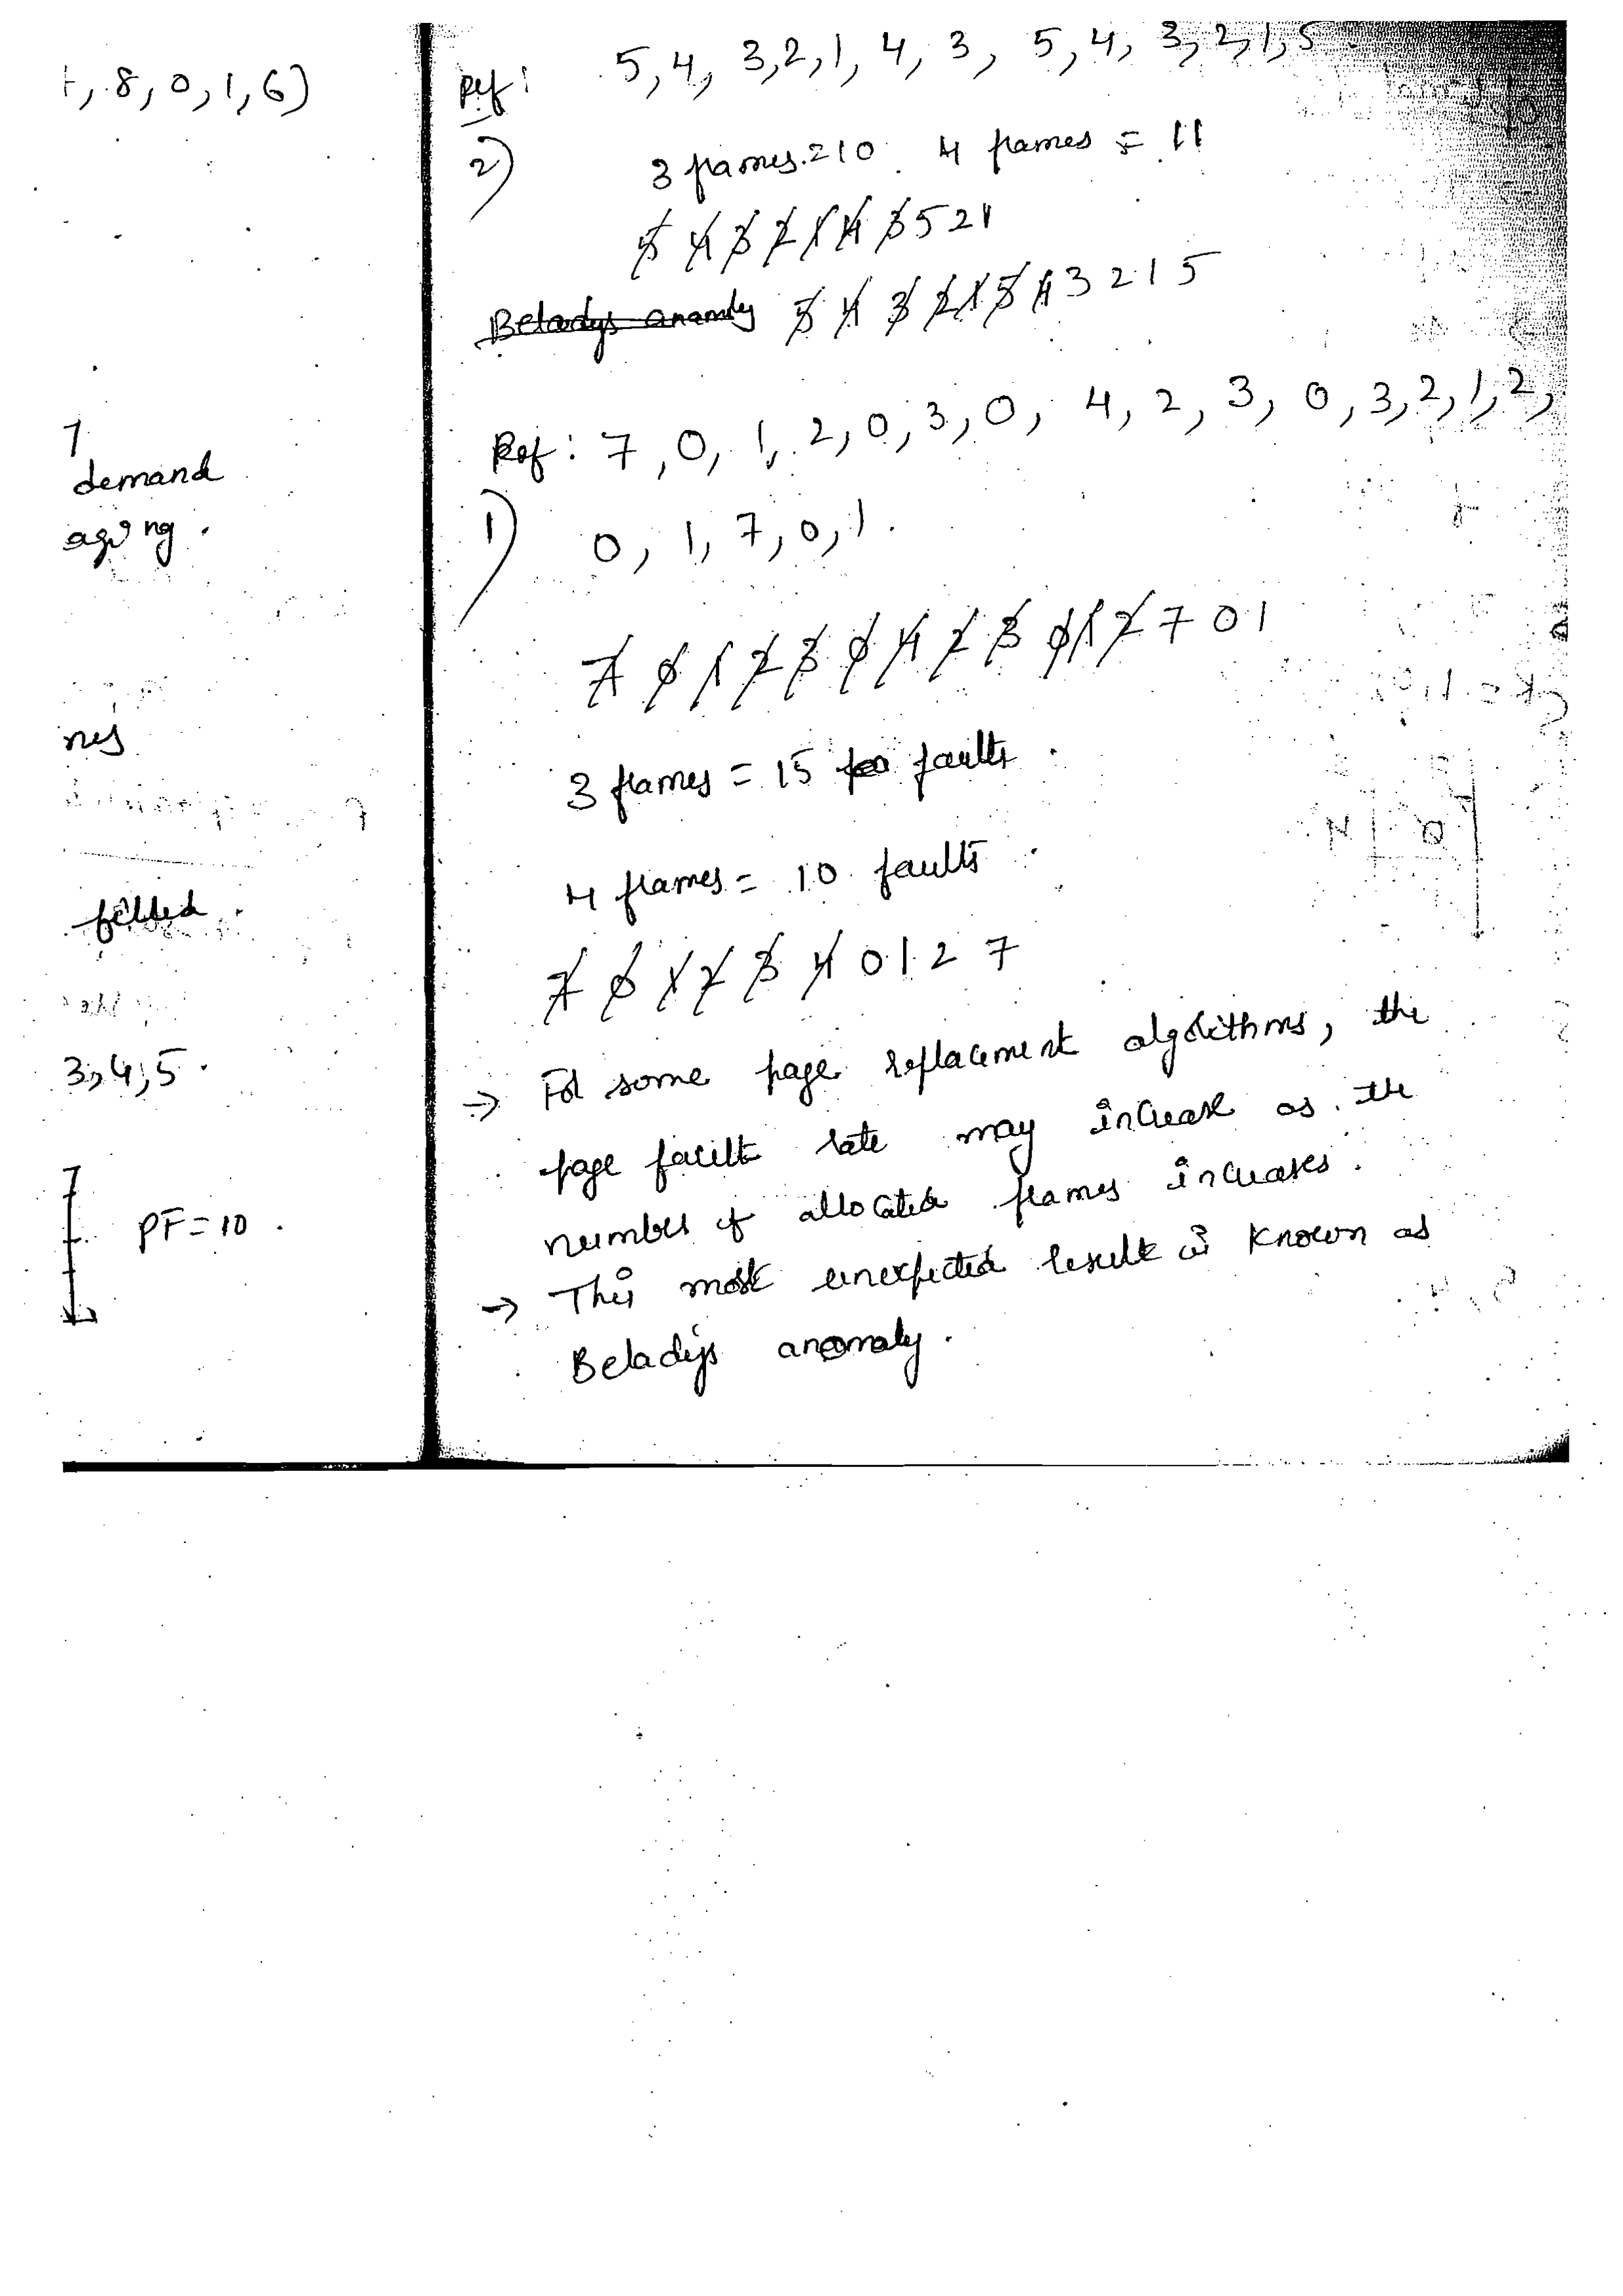 , 8, 0, 1, 6)
demand
aging.
nes
filled.
3, 4, 5.
PF = 10.
Ref: 5, 4, 3, 2, 1, 4, 3, 5, 4, 3, 2, 1, 5.
2) 3 frames = 10. 4 frames = 11
5 4 3 2 1 4 3 5 2 1
Beladys anamoly 5 4 3 2 1 5 4 3 2 1 5
Ref: 7, 0, 1, 2, 0, 3, 0, 4, 2, 3, 0, 3, 2, 1, 2,
1) 0, 1, 7, 0, 1.
7 0 1 2 3 0 4 2 3 0 1 2 7 0 1
3 frames = 15 faults.
4 frames = 10 faults.
7 0 1 2 3 4 0 1 2 7
→ For some page replacement algorithms, the
page fault rate may increase as the
number of allocated frames increases.
→ This most unexpected result is known as
Beladys anomaly.